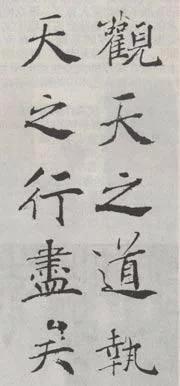 觀天之道執
天之行盡矣